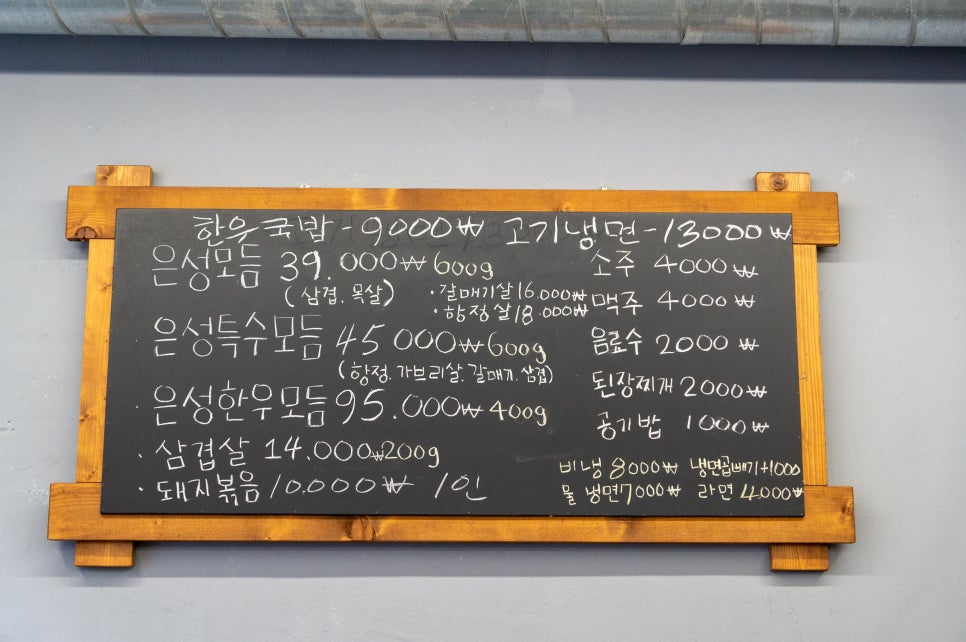 한우국밥 - 9000₩ 고기냉면 - 13000₩
은성모듬 39.000₩ 600g
(삼겹. 목살)
· 갈매기살 16.000₩
· 항정살 18.000₩
은성특수모듬 45000₩ 600g
(항정. 가브리살. 갈매기. 삼겹)
· 은성한우모듬 95.000₩ 400g
· 삼겹살 14.000₩ 200g
· 돼지볶음 10.000₩ 1인
소주 4000₩
맥주 4000₩
음료수 2000₩
된장찌개 2000₩
공기밥 1000₩
비냉 8000₩ 냉면곱빼기+1000
물냉면 7000₩ 라면 4.000₩